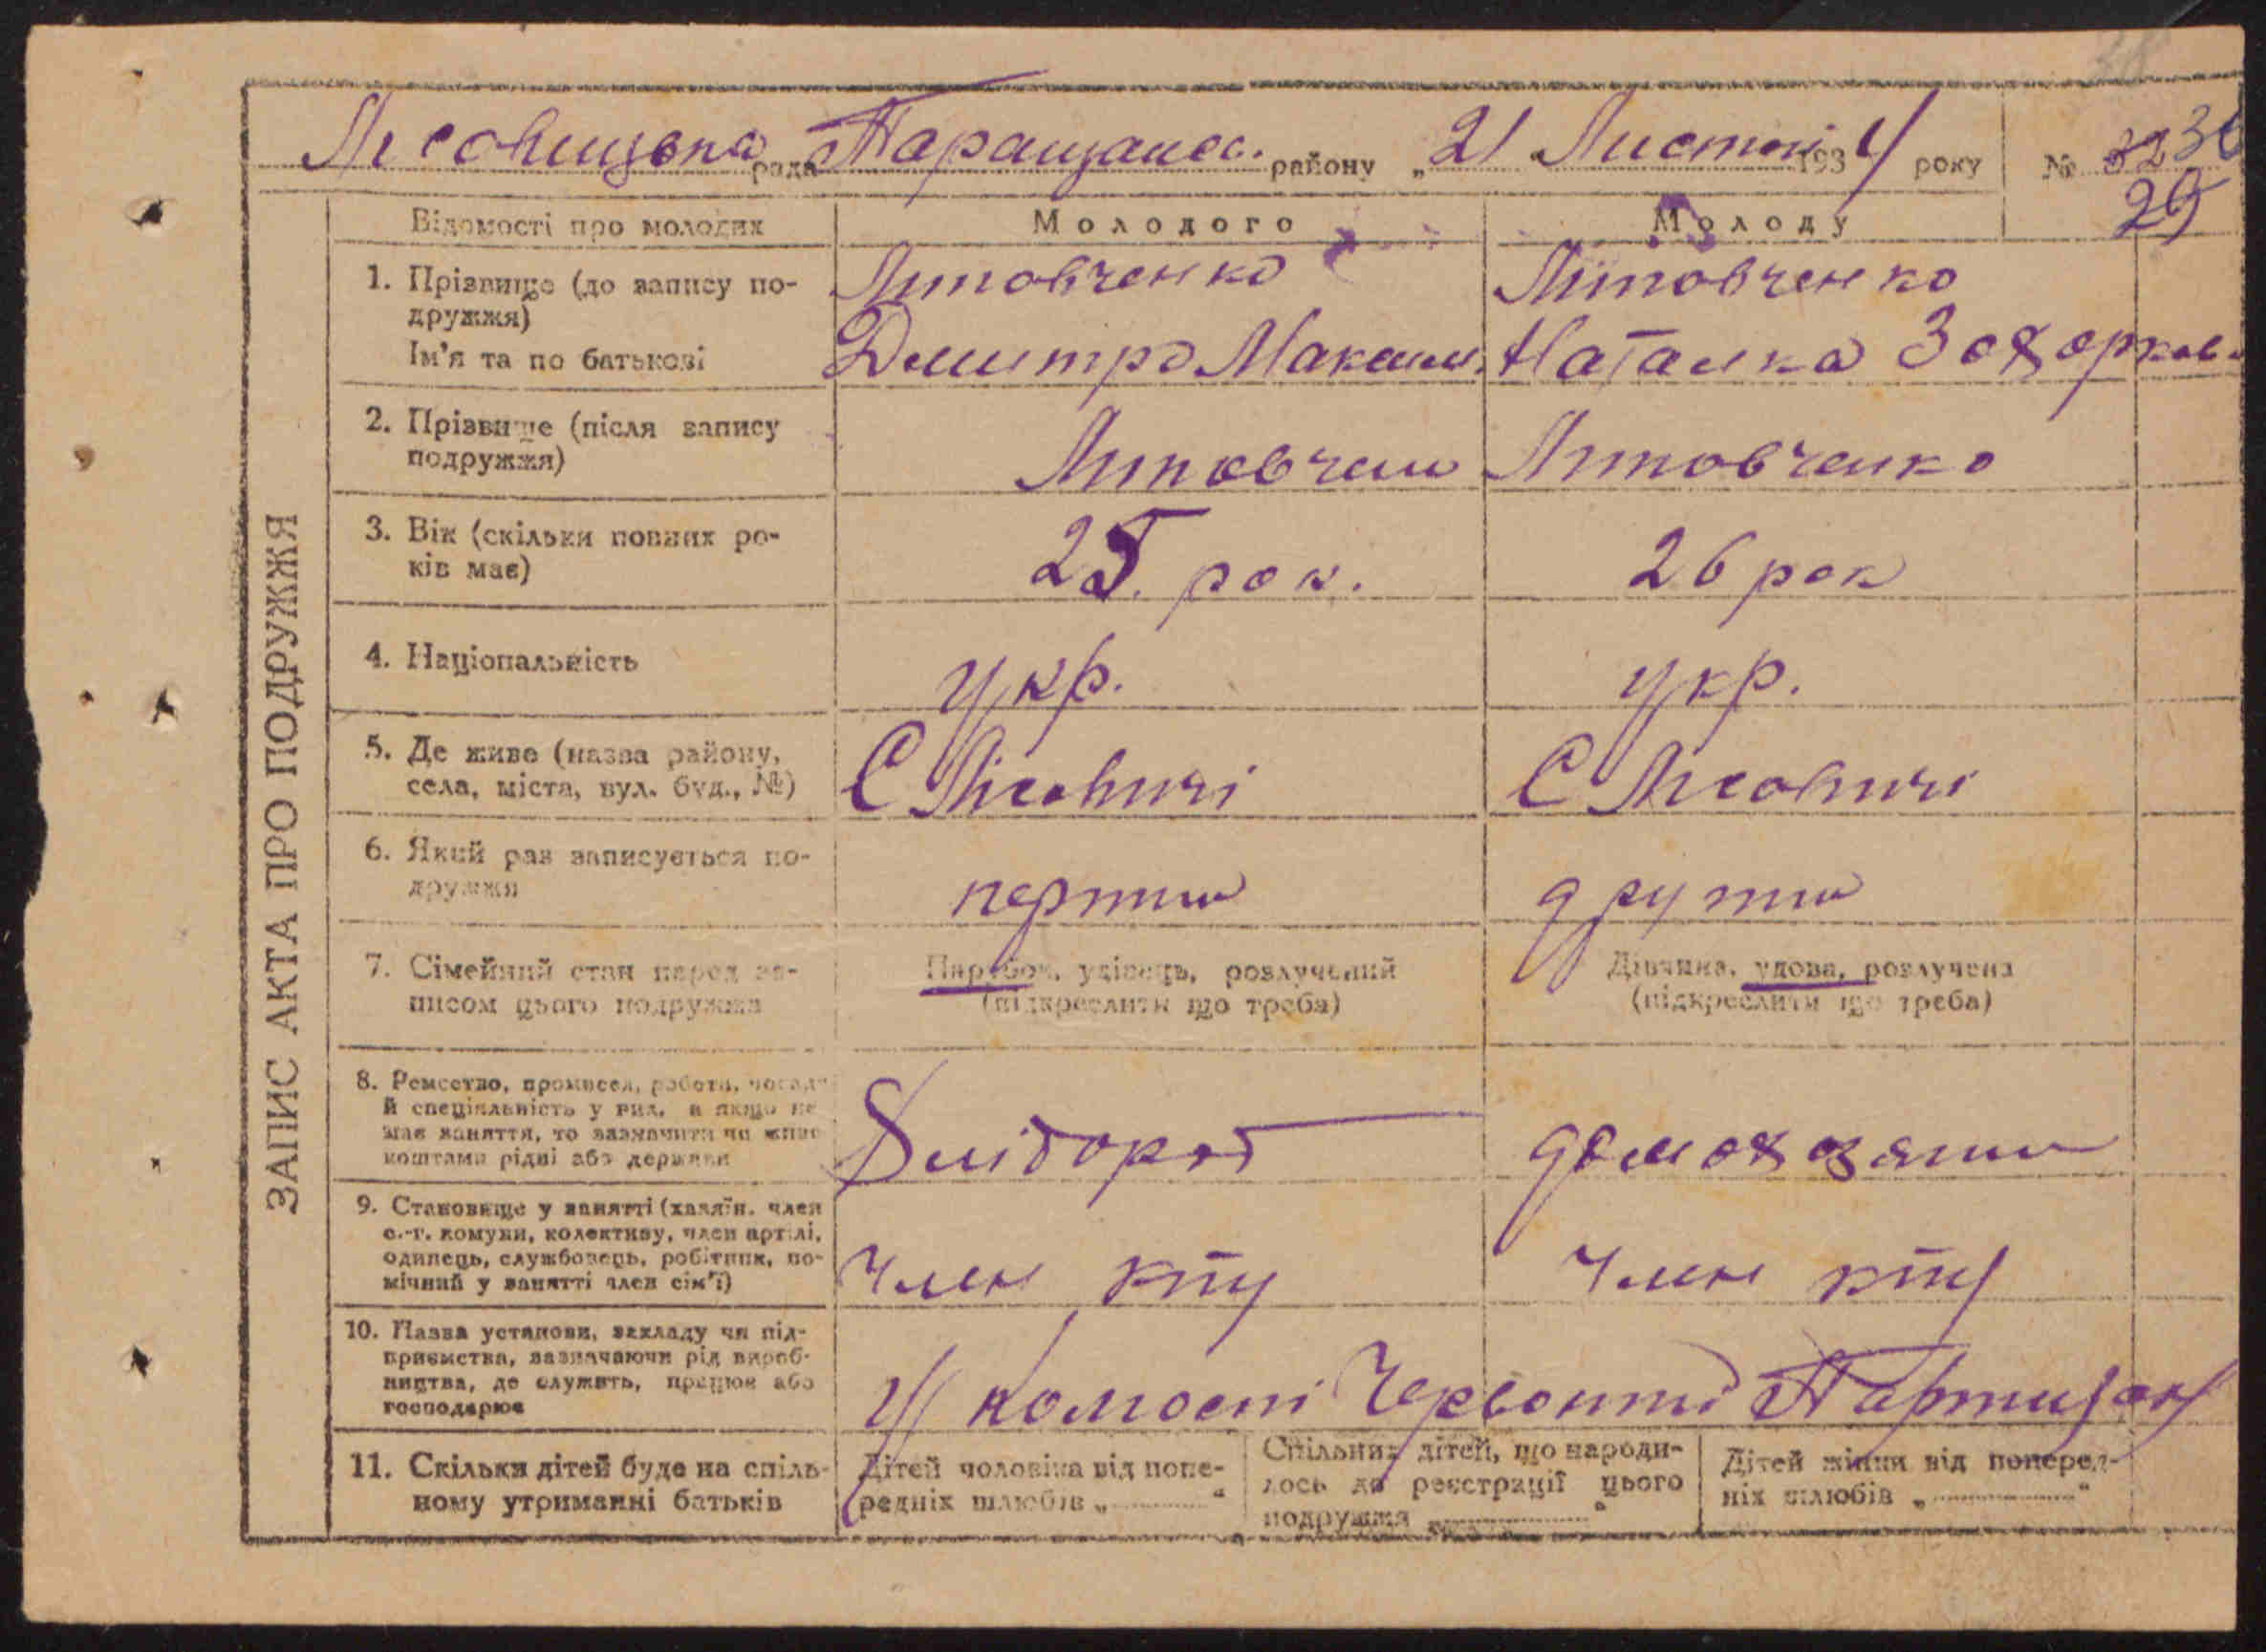 38
Лісовицька рада Таращанск. району „21" Листоп 1934 року № 3230
29
ЗАПИС АКТА ПРО ПОДРУЖЖЯ
Відомості про молодих
Молодого
Молоду
1. Прізвище (до запису по-
дружжя)
Ім'я та по батькові
Литовченко
Дмитро Максим.
Литовченко
Наталка Захарков.
2. Прізвище (після запису
подружжя)
Литовчен
Литовченко
3. Вік (скільки повних ро-
ків має)
25. рок.
26 рок
4. Національність
укр.
укр.
5. Де живе (назва району,
села, міста, вул. буд., №)
С Лісовичі
С Лісовичі
6. Який раз записується по-
дружжя
перший
другий
7. Сімейний стан перед за-
писом цього подружжя
Парубок, удівець, розлучений
(підкреслити що треба)
Дівчина, удова, розлучена
(підкреслити що треба)
8. Ремество, промисел, робота, посада
й спеціяльність у них, а якщо не
має заняття, то зазначити чи живе
коштами рідні або держави
хлібороб
домохазяин
9. Становище у занятті (хазяїн, член
с.-г. комуни, колективу, член артілі,
одинець, службовець, робітник, по-
мічний у занятті член сім'ї)
Член кту
Член кту
10. Назва установи, закладу чи під-
приємства, зазначаючи рід вироб-
ництва, де служить, працює або
господарює
У колгоспі Червоний Партизан
11. Скільки дітей буде на спіль-
ному утриманні батьків
Дітей чоловіка від попе-
редніх шлюбів „ "
Спільних дітей, що народи-
лось до реєстрації цього
подружжя „ "
Дітей жінки від поперед-
ніх шлюбів „ "